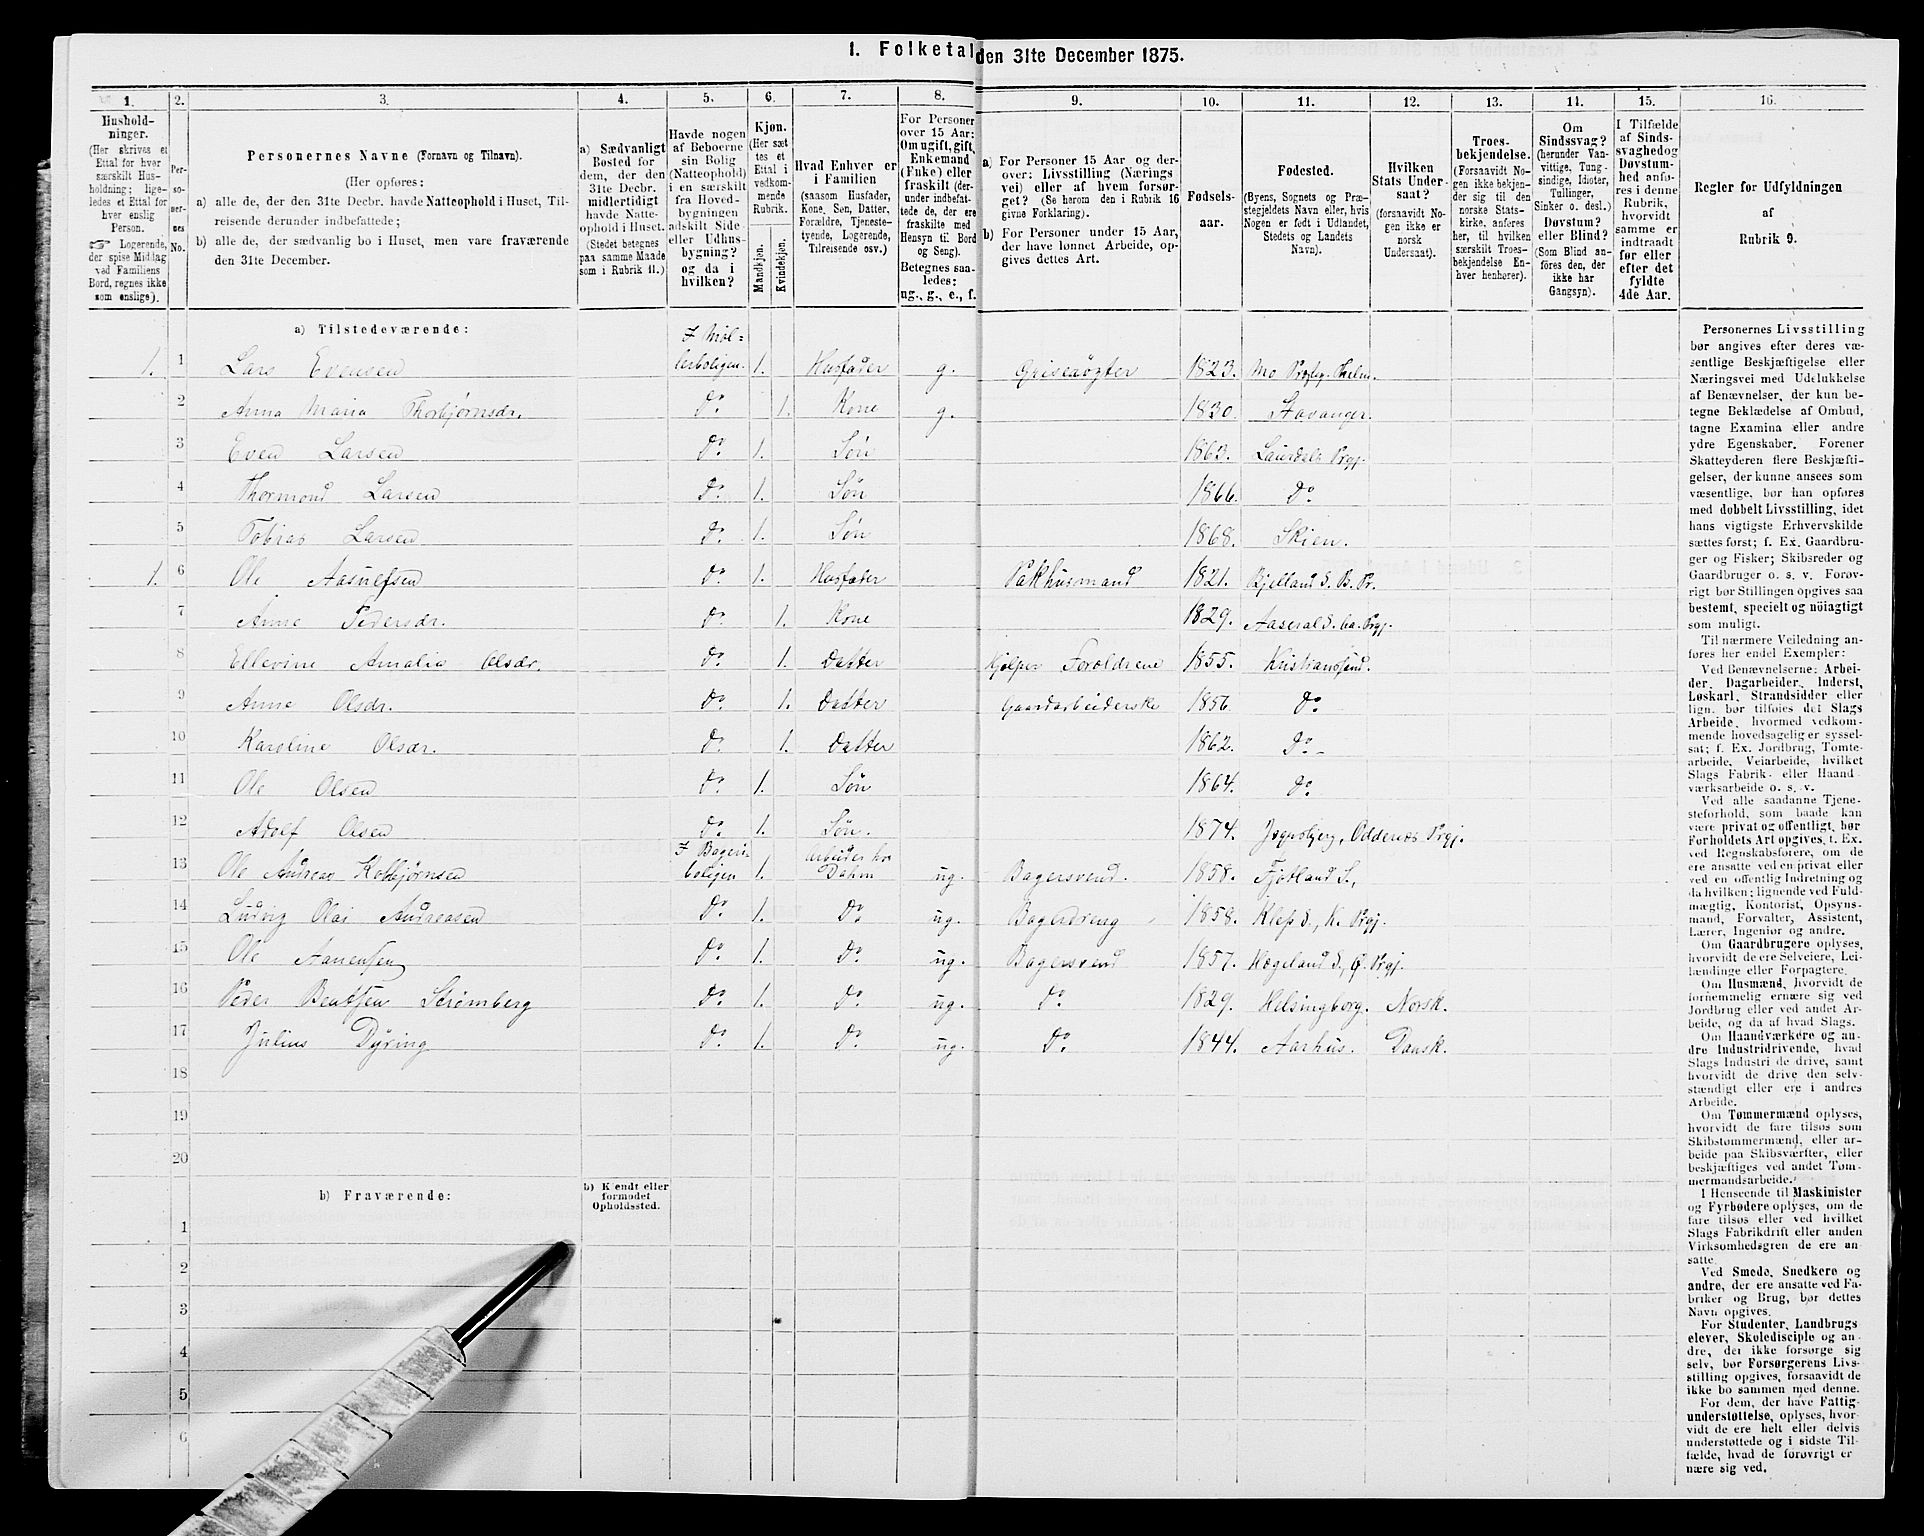 1. Folketal den 31te December 1875.
1. 2. 3. 4. 5. 6. 7. 8. 9. 10. 11. 12. 13. 14. 15. 16.
Hushold-
ninger.
(Her skrives et
Ettal for hver
særskilt Hus-
holdning; lige-
ledes et Ettal for
hver enslig
Person.
☞ Logerende,
der spise Middag
ved Familiens
Bord, regnes ikke
som enslige).
Per-
so-
ner-
nes
No.
Personernes Navne (Fornavn og Tilnavn).
(Her opføres:
a) alle de, der den 31te Decbr. havde Natteophold i Huset, Til-
reisende derunder indbefattede;
b) alle de, der sædvanlig bo i Huset, men vare fraværende
den 31te December.
a) Sædvanligt
Bosted for
dem, der den
31te Decbr.
midlertidigt
havde Natte-
ophold i Huset.
(Stedet betegnes
paa samme Maade
som i Rubrik 11.)
Havde nogen
af Beboerne
sin Bolig
(Natteophold)
i en særskilt
fra Hoved-
bygningen
adskilt Side-
eller Udhus-
bygning?
og da i
hvilken?
Kjøn.
(Her sæt-
tes et
Ettal i
vedkom-
mende
Rubrik.
Mandkjøn.
Kvindekjøn.
Hvad Enhver er
i Familien
(saasom Husfader,
Kone, Søn, Datter,
Forældre, Tjeneste-
tyende, Logerende,
Tilreisende osv.)
For Personer
over 15 Aar:
Om ugift, gift,
Enkemand
(Enke) eller
fraskilt (der-
under indbefat-
tede de, der ere
fraskilte med
Hensyn til Bord
og Seng).
Betegnes saa-
ledes:
ug., g., e., f.
a) For Personer 15 Aar og der-
over: Livsstilling (Nærings-
vei) eller af hvem forsør-
get? (Se herom den i Rubrik 16
givne Forklaring).
b) For Personer under 15 Aar,
der have lønnet Arbeide, op-
gives dettes Art.
Fødsels-
aar.
Fødested.
(Byens, Sognets og Præ-
stegjeldets Navn eller, hvis
Nogen er født i Udlandet,
Stedets og Landets
Navn).
Hvilken
Stats Under-
saat?
(forsaavidt No-
gen ikke er
norsk
Undersaat).
Troes-
bekjendelse.
(Forsaavidt No-
gen ikke bekjen-
der sig til den
norske Stats-
kirke, anføres
her, til hvilken
særskilt Troes-
bekjendelse En-
hver henhører).
Om
Sindssvag?
(herunder Van-
vittige, Tung-
sindige, Idioter,
Tullinger,
Sinker o. desl.)
Døvstum?
eller Blind?
(Som Blind an-
føres den, der
ikke har
Gangsyn).
I Tilfælde
af Sinds-
svaghed og
Døvstum-
hed anfø-
res i denne
Rubrik,
hvorvidt
samme er
indtraadt
før eller
efter det
fyldte
4de Aar.
Regler for Udfyldningen
af
Rubrik 9.
a) Tilstedeværende:
1. 1 Lars Evensen I Møl-lerboligen. 1. Husfader g. 1823.
2 Anna Maria Thorbjørnsdr. Do. 1. Kone g. 1830. Stavanger.
3 Even Larsen Do. 1. Søn 1863. Laurdals Prgj.
4 Thormond Larsen Do. 1. Søn 1866. Do.
5 Tobias Larsen Do. 1. Søn 1868. Skien.
1. 6 Ole Do. 1. Husfader Pakhusmand 1821. Bjelland S. B. Pr.
7 Anne Pedersdr. Do. 1. Kone 1829. Aaseral S. Prgj.
8 Ellevine Amalia Olsdr. Do. 1. Datter Hjelper Forældrene 1855. Kristianssand.
9 Anne Olsdr. Do. 1. Datter Gaardarbeiderske 1856 Do.
10 Karoline Olsdr. Do. 1. Datter 1862. Do.
11 Ole Olsen Do. 1. Søn 1864. Do.
12 Adolf Olsen Do. 1. Søn. 1874. Oddernes Prgj.
13 Ole Andreas Kolbjørnsen I Bageri-boligen 1. arbeider hos Dahm ug. Bagersvend. 1858. Fjotland S.,
14 Ludvig Olai Andreasen Do. 1. Do. ug. Bagerdreng 1858. Klep S., K. Prgj.
15 Ole Aanensen Do. 1. Do. ug. Bagersvend 1857. Hægeland S., Ø. Prgj.
16 Peder Bentsen Strømberg Do. 1. Do. ug. Do. 1829. Helsingborg. Norsk.
17 Julius Dyring Do. 1. Do. ug. Do. 1844. Aarhus. Dansk.
18
19
20
b) Fraværende:
b) Kjendt eller
formodet
Opholdssted.
1
2
3
4
5
6
Personernes Livsstilling
bør angives efter deres væ-
sentlige Beskjæftigelse eller
Næringsvei med Udelukkelse
af Benævnelser, der kun be-
tegne Beklædelse af Ombud,
tagne Examina eller andre
ydre Egenskaber. Forener
Skatteyderen flere Beskjæfti-
gelser, der kunne ansees som
væsentlige, bør han opføres
med dobbelt Livsstilling, idet
hans vigtigste Erhvervskilde
sættes først; f. Ex. Gaardbru-
ger og Fisker; Skibsreder og
Gaardbruger o. s. v. Forøv-
rigt bør Stillingen opgives saa
bestemt, specielt og nöiagtigt
som muligt.
Til nærmere Veiledning an-
føres her endel Exempler:
Ved Benævnelserne: Arbei-
der, Dagarbeider, Inderst,
Løskarl, Strandsidder eller
lign. bør tilføies det Slags
Arbeide, hvormed vedkom-
mende hovedsagelig er syssel-
sat; f. Ex. Jordbrug, Tomte-
arbeide, Veiarbeide, hvilket
Slags Fabrik- eller Haand-
værksarbeide o. s. v.
Ved alle saadanne Tjene-
steforhold, som baade kan
være privat og offentligt, bør
Forholdets Art opgives, t. Ex.
ved Regnskabsførere, om de
ere ansatte ved en privat eller
ved en offentlig Indretning og
da hvilken; lignende ved Fuld-
mægtig, Kontorist, Opsyns-
mand, Forvalter, Assistent,
Lærer, Ingeniør og andre.
Om Gaardbrugere oplyses,
hvorvidt de ere Selveiere, Lei-
lændinge eller Forpagtere.
Om Husmænd, hvorvidt de
fornemmelig ernære sig ved
Jordbrug eller ved andet Ar-
beide, og da af hvad Slags.
Om Haandværkere og an-
dre Industridrivende, hvad
Slags Industri de drive, samt
hvorvidt de drive den selv-
stændigt eller ere i andres
Arbeide.
Om Tømmermænd oplyses,
hvorvidt de fare tilsøs som
Skibstømmermænd, eller ar-
beide paa Skibsværfter, eller
beskjæftiges ved andet Tøm-
mermandsarbeide.
I Henseende til Maskinister
og Fyrbødere oplyses, om de
fare tilsøs eller ved hvilket
Slags Fabrikdrift eller anden
Virksomhedsgren de ere an-
satte.
Ved Smede, Snedkere og
andre, der ere ansatte ved Fa-
briker og Brug, bør dettes
Navn opgives.
For Studenter, Landbrugs-
elever, Skoledisciple og an-
dre, der ikke forsørge sig
selv, bør Forsørgerens Livs-
stilling opgives, forsaavidt de
ikke bo sammen med denne.
For dem, der have Fattig-
understøttelse, oplyses, hvor-
vidt de ere helt eller delvis
understøttede og i sidste Til-
fælde, hvad de forøvrigt er-
nære sig ved.